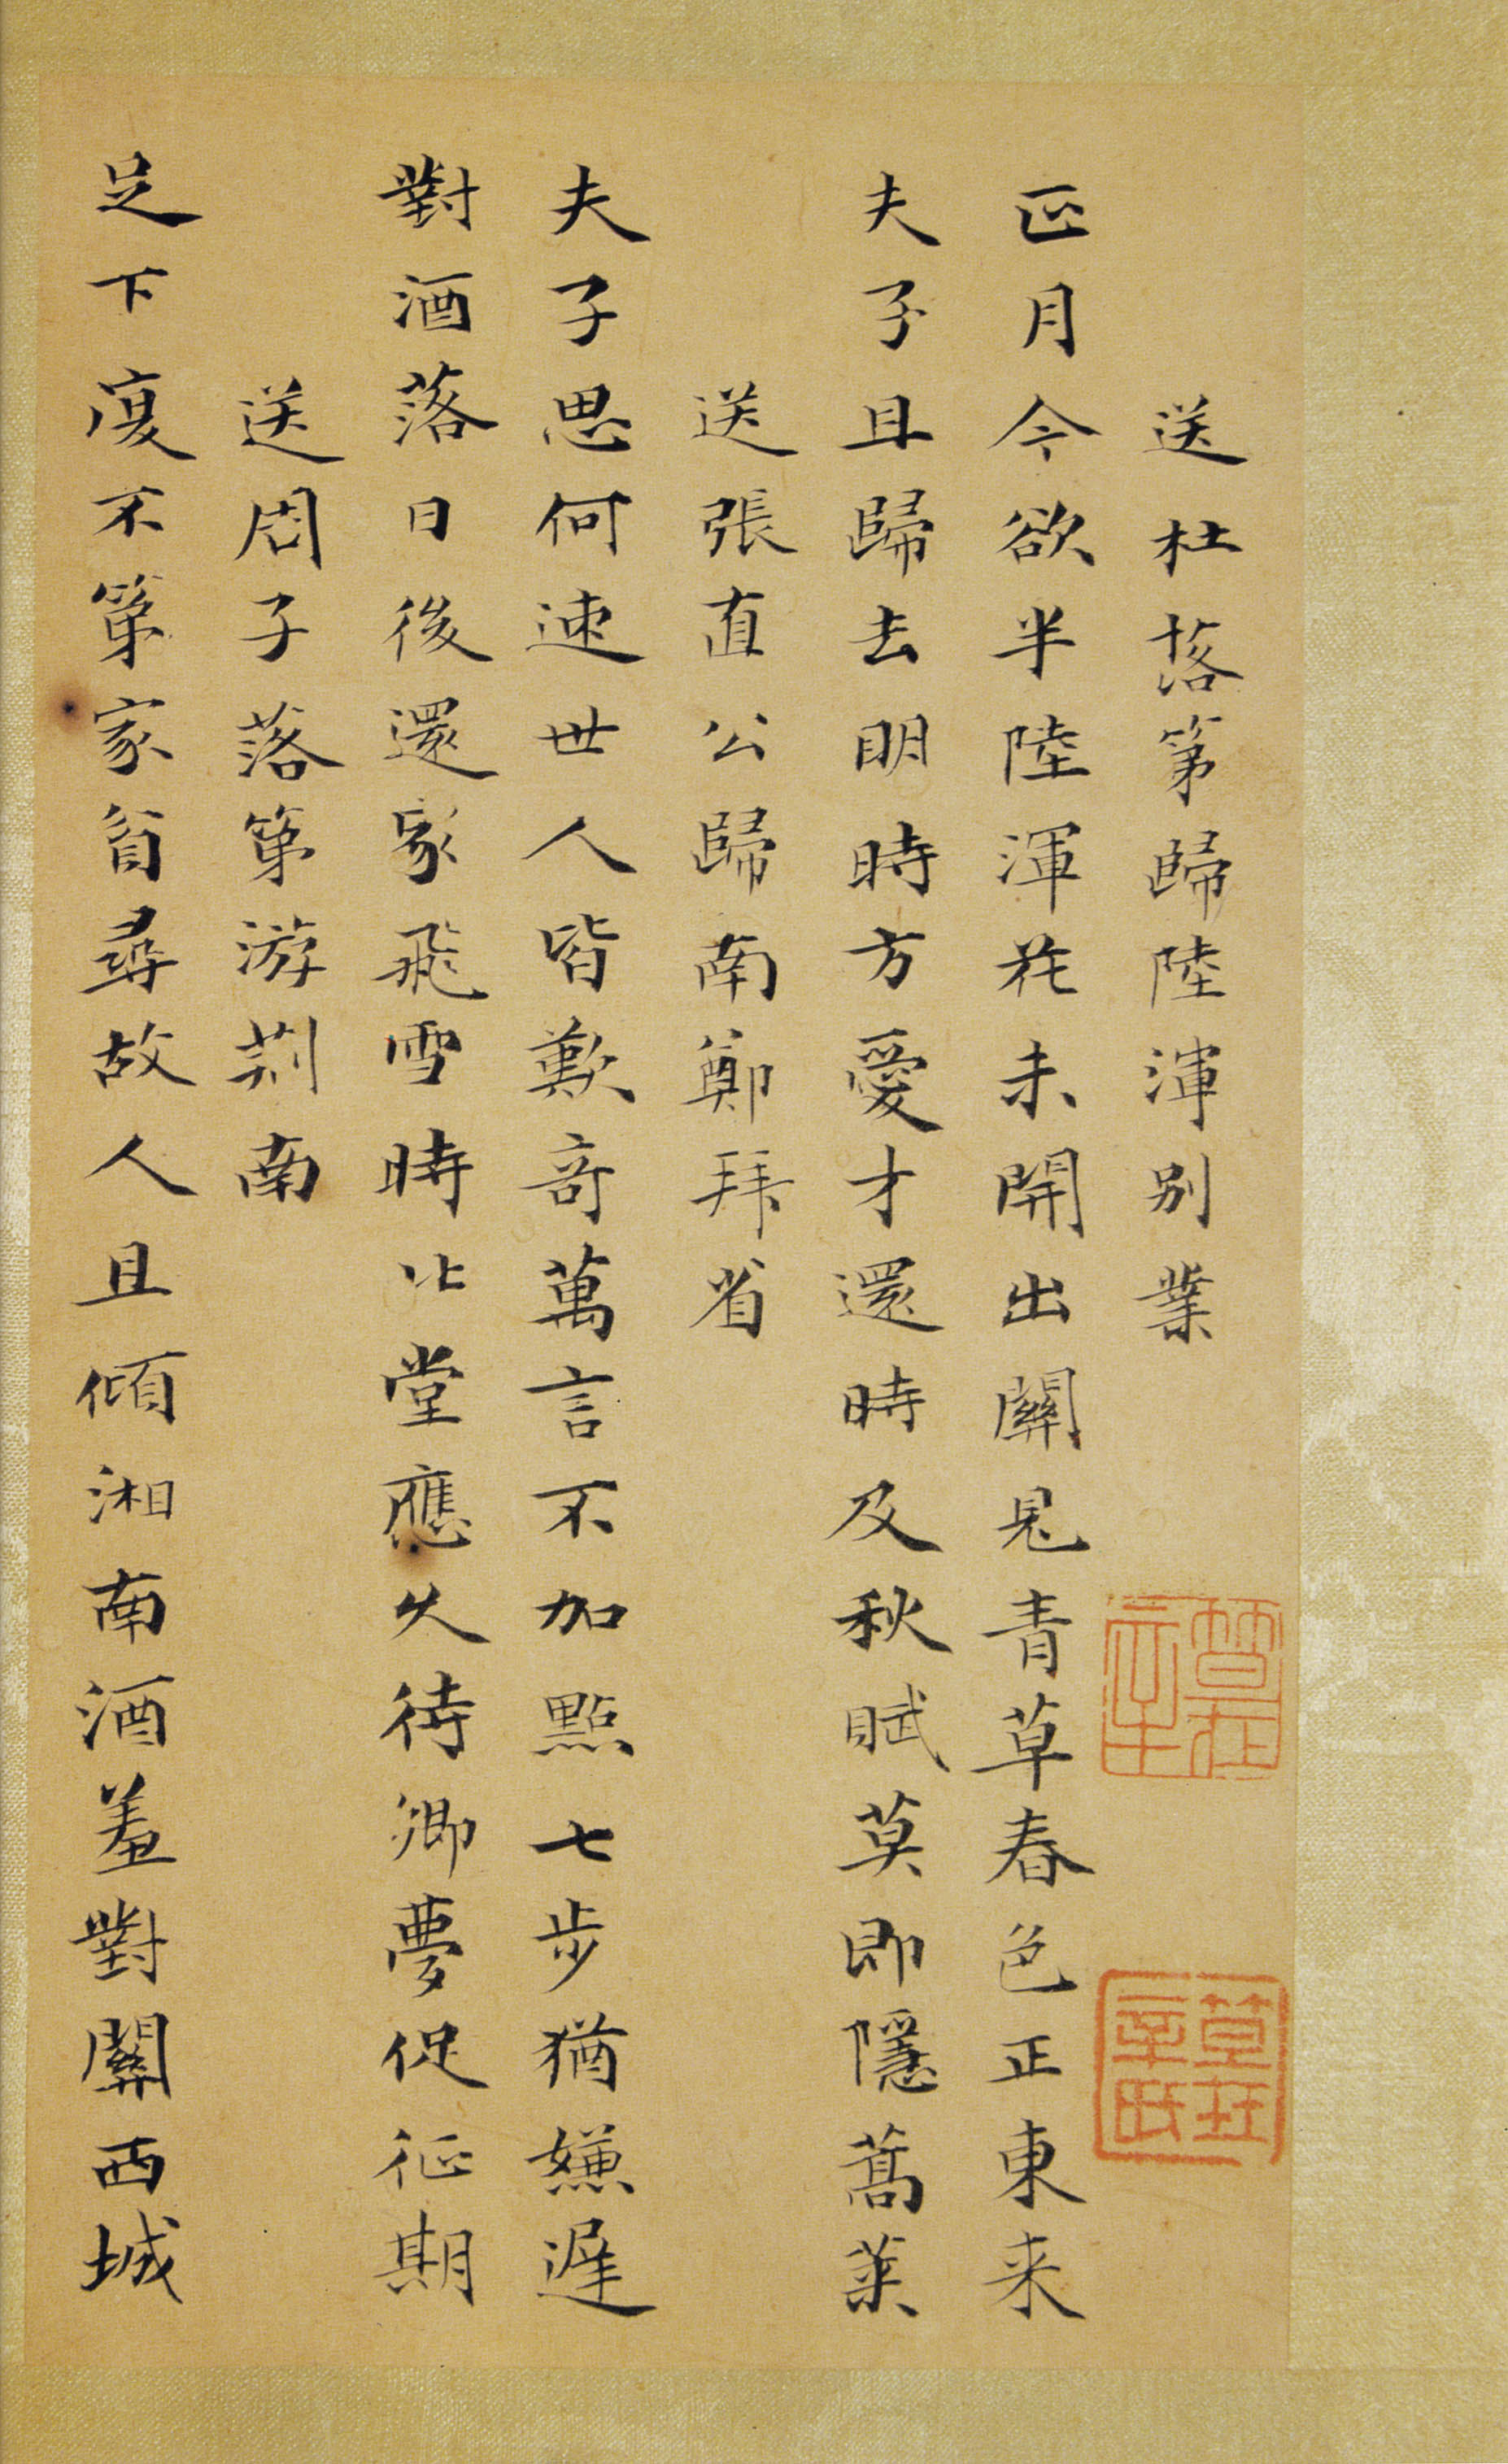 送杜落第歸陸渾别業
正月今欲半陸渾花未開出關見青草春色正東来
夫子且歸去明時方愛才還時及秋賦莫即隱蒿萊
送張直公歸南鄭拜省
夫子思何速世人皆歎奇萬言不加點七步猶嫌遲
對酒落日後還家飛雪時北堂應久待鄉夢促征期
送周子落第游荆南
足下復不第家貧尋故人且傾湘南酒羞對關西城